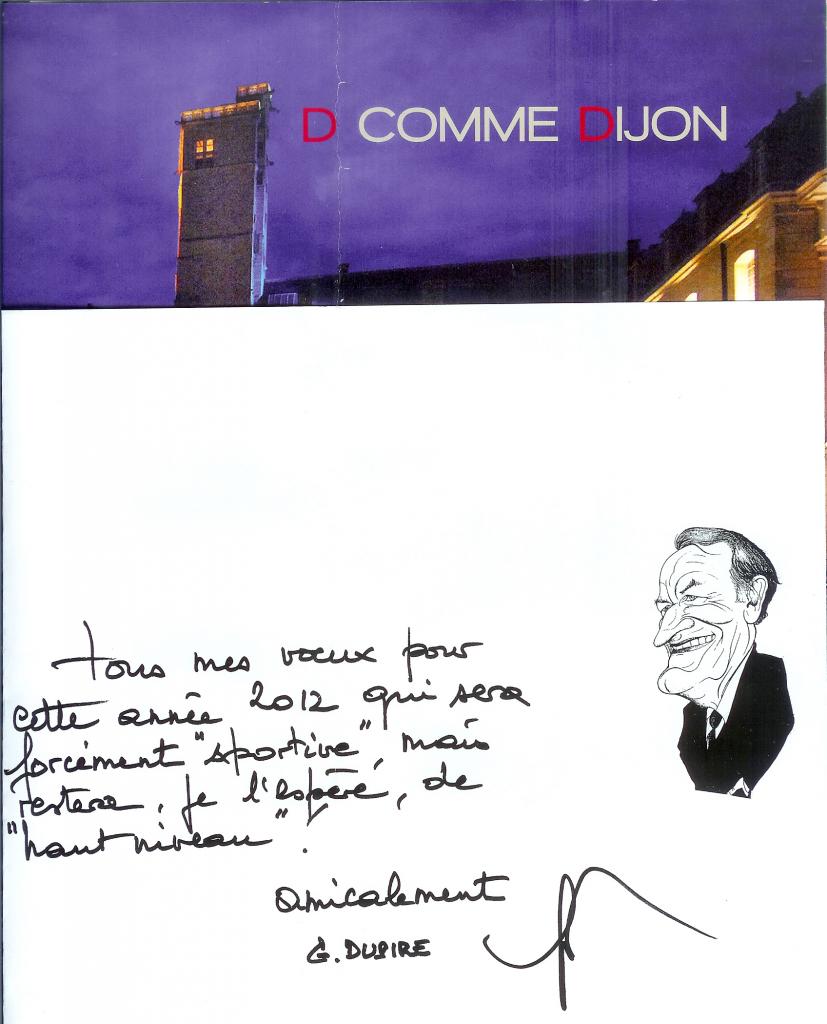 D COMME DIJON
tous mes vœux pour
cette année 2012 qui sera
forcément "sportive", mais
restera, je l'espère, de
"haut niveau".
amicalement
G. DUPIRE